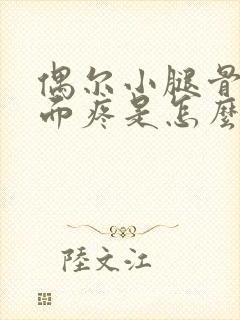 偶尔小腿骨
而疼是怎麼
陸文江